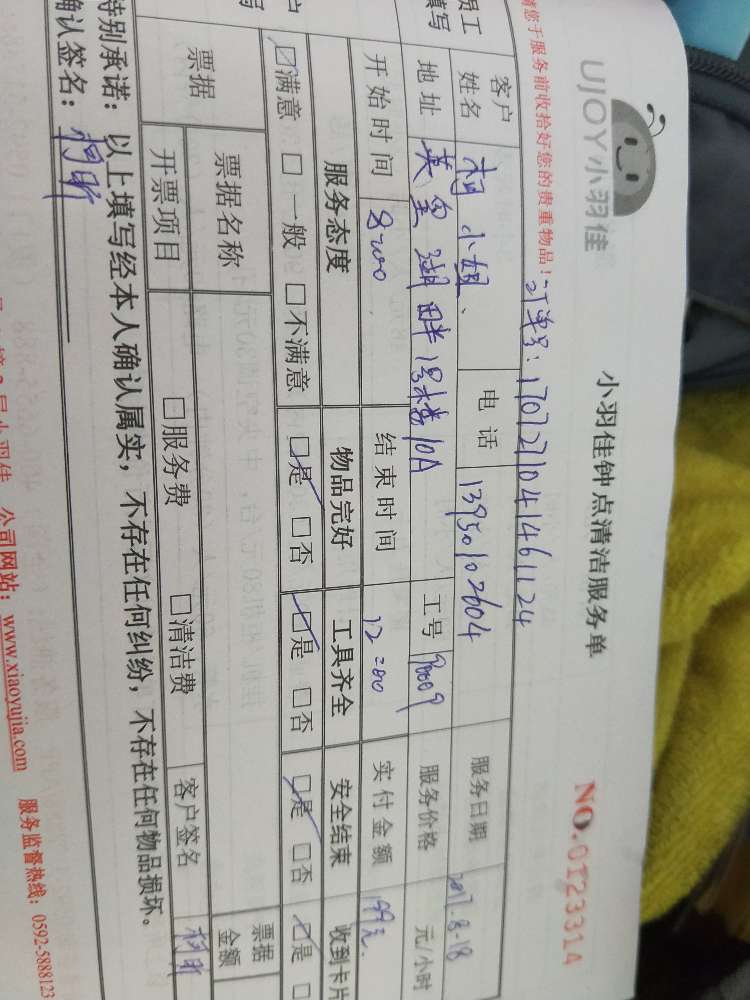 UJOY小羽佳
小羽佳钟点清洁服务单
NO.0123314
请您于服务前收拾好您的贵重物品!
订单号:1707271041461124
客户姓名 柯小姐 电话 13950102604 服务日期 2017.8.18
员工填写 地址 工号 服务价格 元/小时
开始时间 8:00 结束时间 12:00 实付金额 199元
服务态度 物品完好 工具齐全 安全结束 收到卡片
☑满意 □一般 □不满意 ☑是 □否 ☑是 □否 ☑是 □否 ☑是 □
票据 票据名称 票据金额
开票项目 □服务费 □清洁费 客户签名
特别承诺:以上填写经本人确认属实,不存在任何纠纷,不存在任何物品损坏。
确认签名:
公司网站:www.xiaoyujia.com 服务监督热线:0592-5888123